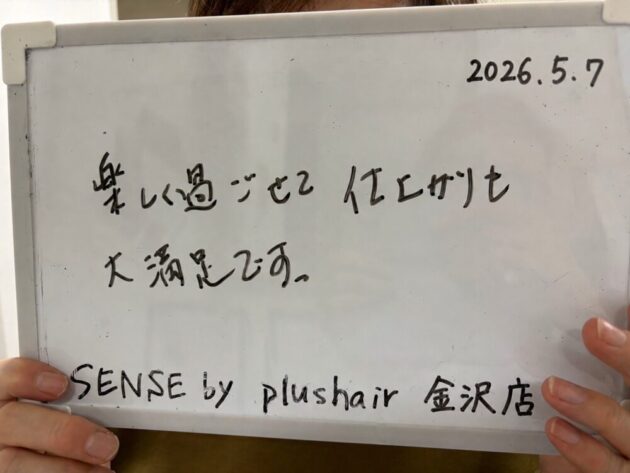 2026.5.7
楽しく過ごせて 仕上がりも
大満足です。
SENSE by plushair 金沢店